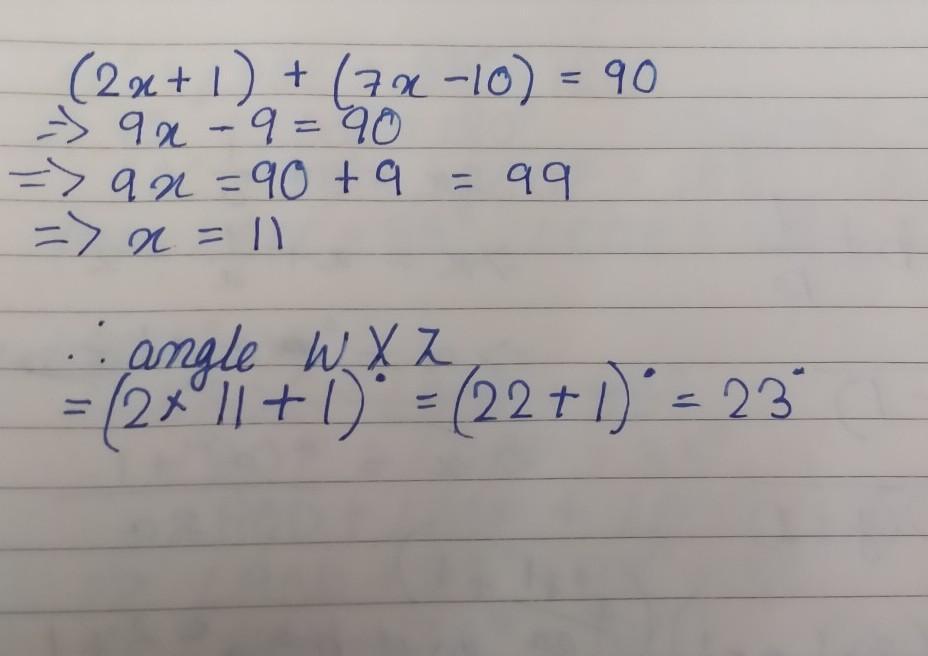 (2x+1) + (7x-10) = 90
=> 9x - 9 = 90
=> 9x = 90 + 9 = 99
=> x = 11
∴ angle WXZ
= (2× 11 + 1)° = (22 + 1)° = 23°